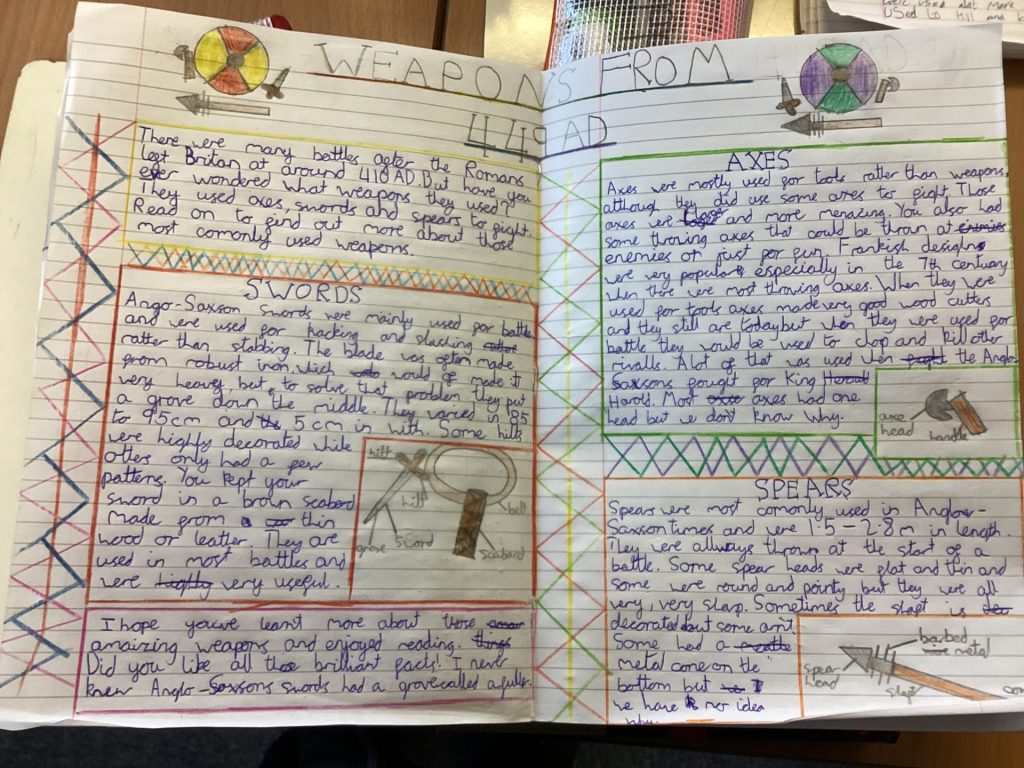 WEAPONS FROM
449 AD
There were many battles after the Romans
left Britan at around 410 AD. But have you
ever wondered what weapons they used?
They used axes, swords and spears to fight.
Read on to find out more about those
most comonly used weapons.
SWORDS
Ango-Saxson swords were mainly used for battle
and were used for hacking and slashing
rather than stabbing. The blade was often made
from robust iron, which would of made it
very heavey but, to solve that problem they put
a grove down the middle. They varied in 85
to 95cm and 5cm in with. Some hilts
were highly decorated while
others only had a few
patterns. You kept your
sword in a broun scabard
made from thin
wood or leather. They are
used in most battles and
were highly very useful.
hilt
hilt
belt
grove
sword
scabard
I hope youve learnt more about those
amaizing weapons and enjoyed reading. things
Did you like all thoe brilliant facts! I never
knew Anglo-Saxsons swords had a grove called a fuller.
AXES
Axes were mostly used for tools rather than weapons,
although they did use some axes to fight. Those
axes were and more menacing. You also had
some throwing axes that could be thrown at enemies
enemies or just for fun. Frankish designs
were very popular especially in the 7th centuary
when there were most throwing axes. When they were
used for tools axes made very good wood cutters
and they still are today but when they were used for
battle they would be used to chop and kill other
rivalls. Alot of that was used when fought the Anglo-
Saxsons fought for King Harold
Harold. Most axes had one
head but we don't know why.
axe
head
handle
SPEARS
Spears were most comonly used in Anglow-
Saxson times and were 1.5-2.8m in length.
They were allways thrown at the start of a
battle. Some spear heads were flat and thin and
some were round and pointy but they were all
very, very sharp. Sometimes the shaft is
decorated but some arn't.
Some had a
metal cone on the
bottom but
we have no idea
why.
barbed
metal
spear
head
shaft